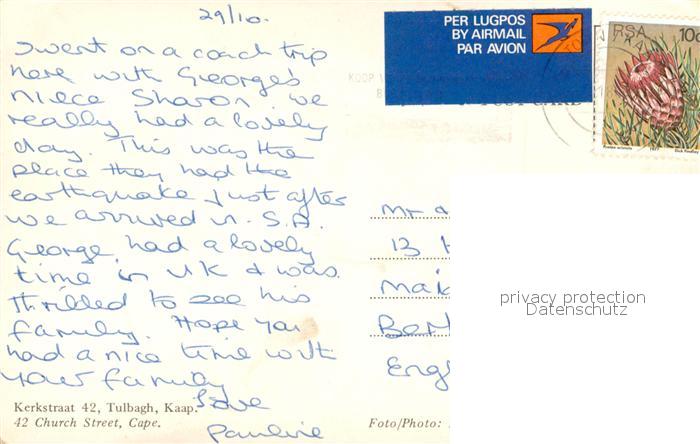 29/10.
I went on a coach trip
here with George's
niece Sharon. we
really had a lovely
day. This was the
place they had the
earthquake just after
we arrived in S.A.
George had a lovely
time in UK & was
thrilled to see his
family. Hope you
had a nice time with
your family
Love
Pauline
Kerkstraat 42, Tulbagh, Kaap.
42 Church Street, Cape.
PER LUGPOS
BY AIRMAIL
PAR AVION
RSA
10c
1977
Dick Findlay
KOOP
Mr
13
Engl
privacy protection
Datenschutz
Foto/Photo: